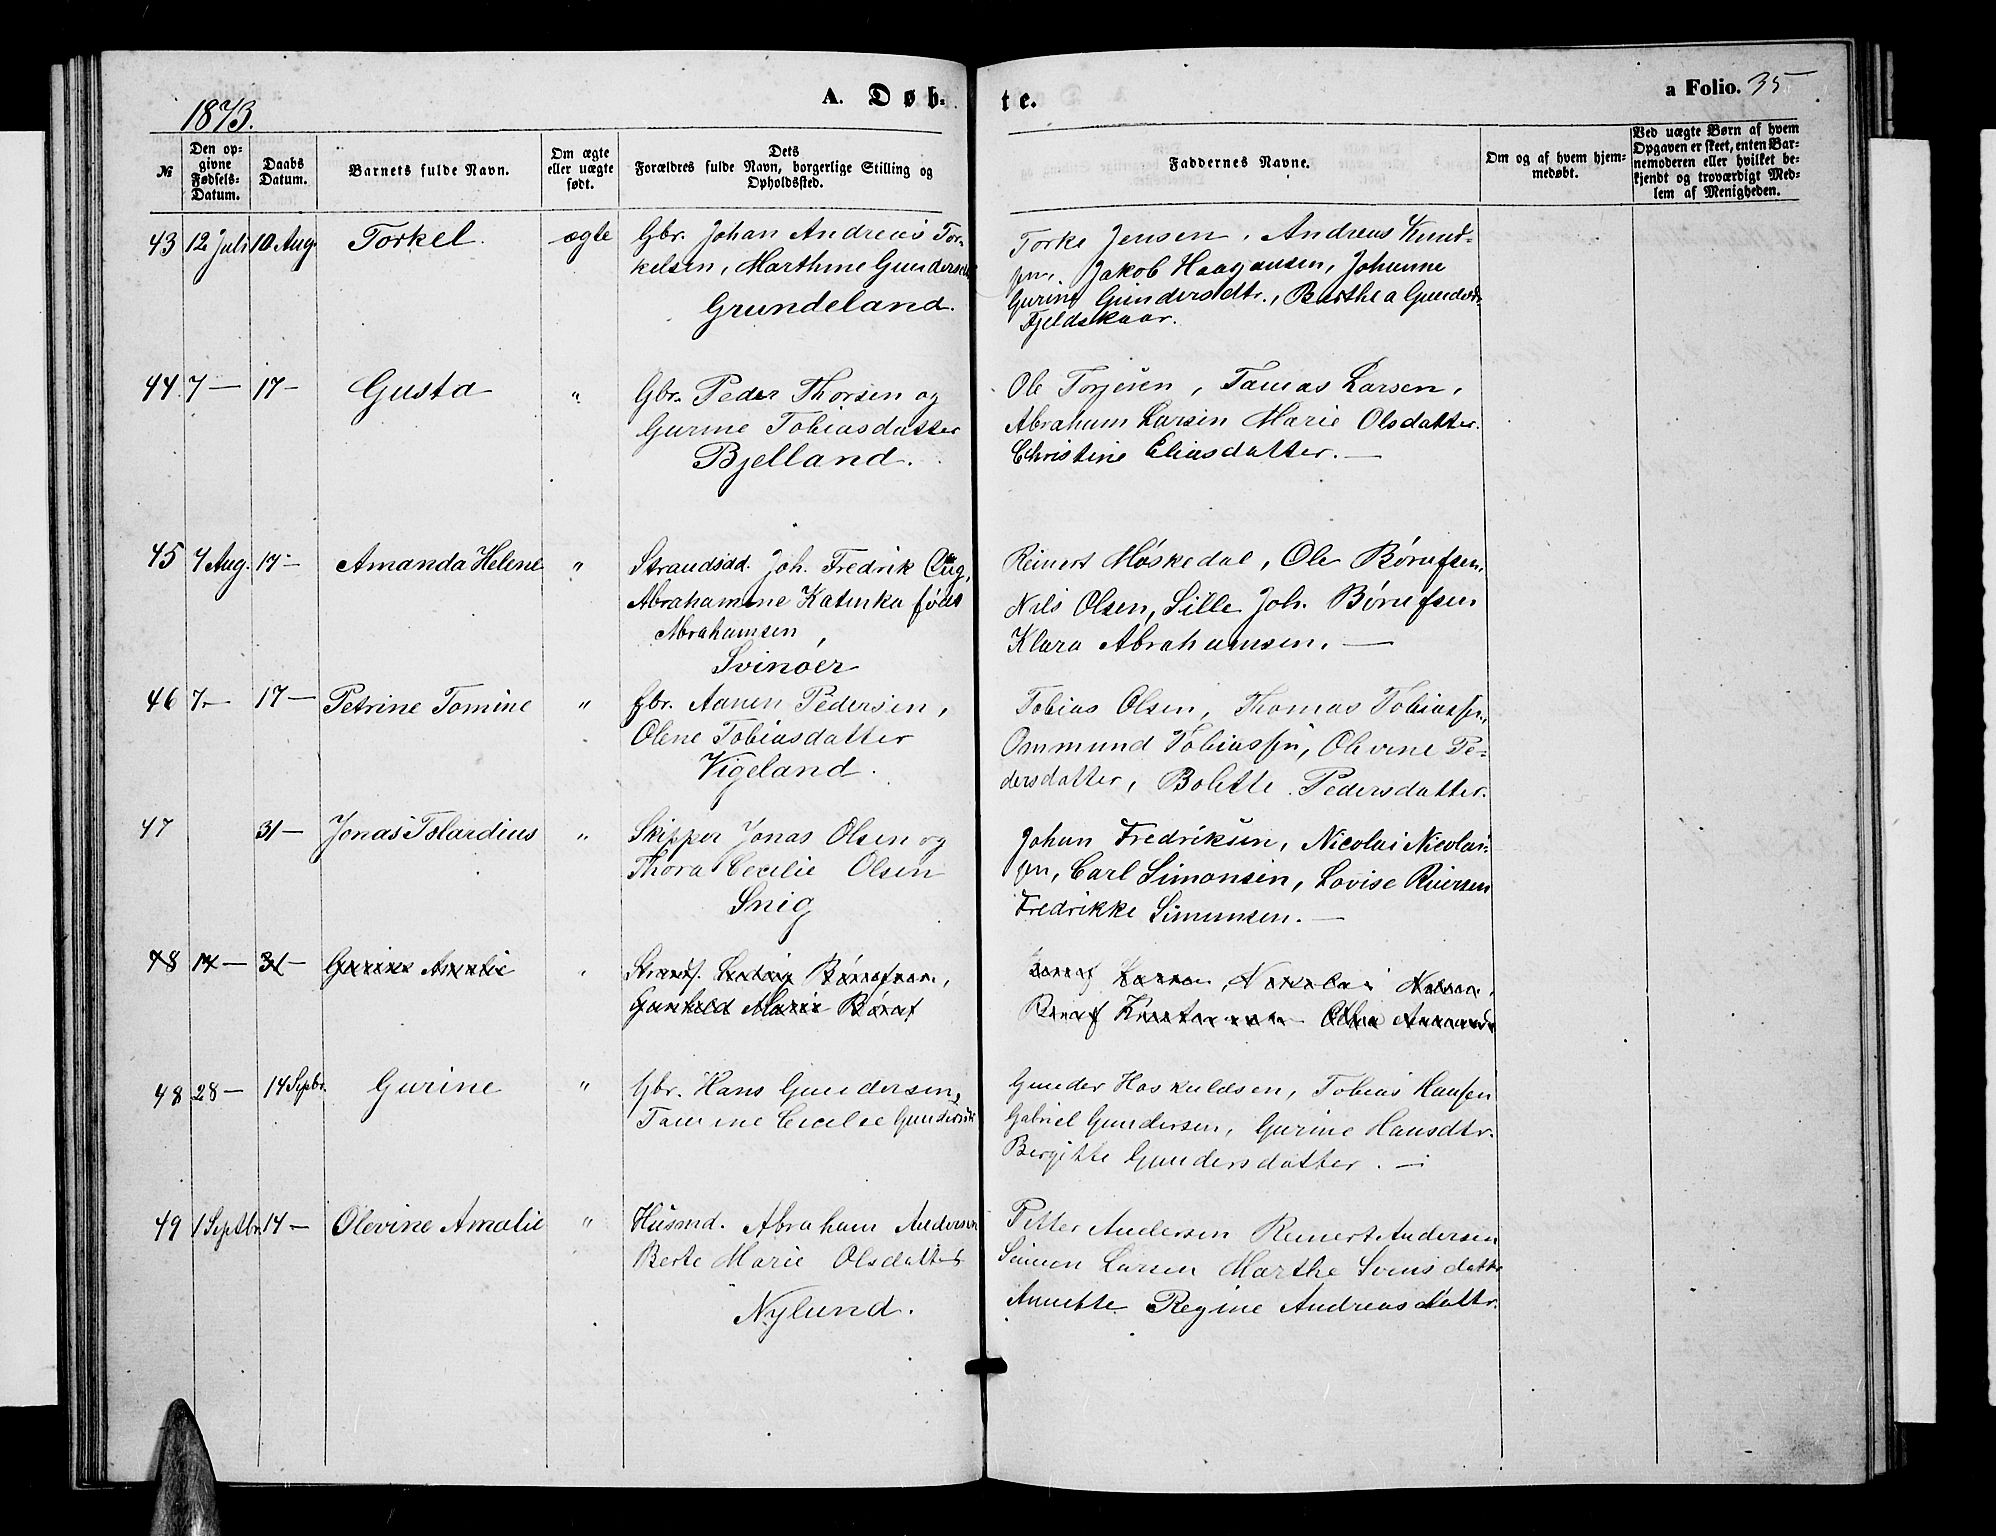 1873.
A. Døb-
te.
a Folio. 35
№
Den op-
givne
Fødsels-
Datum.
Daabs
Datum.
Barnets fulde Navn.
Om ægte
eller uægte
født.
Dets
Forældres fulde Navn, borgerlige Stilling og
Opholdssted.
Faddernes Navne.
Om og af hvem hjem-
medøbt.
Ved uægte Børn af hvem
Opgaven er skeet, enten Bar-
nemoderen eller hvilket be-
kjendt og troværdigt Med-
lem af Menigheden.
43 12 Juli 10 Aug. Torkel. ægte
Gbr. Johan Andreas Tor-
kelsen, Marthine Gundersdtr
Grundeland.
Torke Jensen, Andreas Knud-
sen, Jakob Haagansen, Johanne
Gurine Gundersdtr., Berthea Gundersd.
Fjeldskaar.
44. 7 — 17 — Gusta "
Gbr. Peder Thorsen og
Gurine Tobiasdatter
Bjelland.
Ole Torjesen, Tamas Larsen,
Abraham Larsen Marie Olsdatter.
Christine Eliasdatter. —
45 4 Aug. 17 — Amanda Helene "
Strandsidd. Joh. Fredrik
Abrahamine Katinka født
Abrahamsen,
Svinøer
Reinert Høskedal, Ole Børufsen,
Nils Olsen, Sille Joh. Børufsen
Klara Abrahamsen. —
46 7 — 17 — Petrine Tomine "
Gbr. Aanen Pedersen,
Olene Tobiasdatter
Vigeland.
Tobias Olsen, Thomas Tobiassen,
Ommund Tobiassen, Olevine Pe-
dersdatter, Bolette Pedersdatter.
47 31 — Jonas Tolardius "
Skipper Jonas Olsen og
Thora Cecilie Olsen
Snig
Johan Fredriksen, Nicolai Nicolai-
sen, Carl Simonsen, Lovise Reiersen
Fredrikke Simunsen. —
48 14 — 31 — Gurine Amalie "
Strands. Ludvig
Gunhild Marie
Larsen, Nicolai Nielsen,
48 28 — 14 Sepbr. Gurine "
Gbr. Hans Gundersen,
Tamine Cecilie Gundersdtr
Gunder Haskuldsen, Tobias Hansen
Gabriel Gundersen, Gurine Hansdtr.
Bergitte Gundersdatter. —
49 1 Septbr. 14 — Olevine Amalie "
Husmd. Abraham Andersen
Berte Marie Olsdatter
Nylund.
Petter Andersen Reinert Andersen
Simon Larsen Marthe Svensdatter
Annette Regine Andreasdattr.